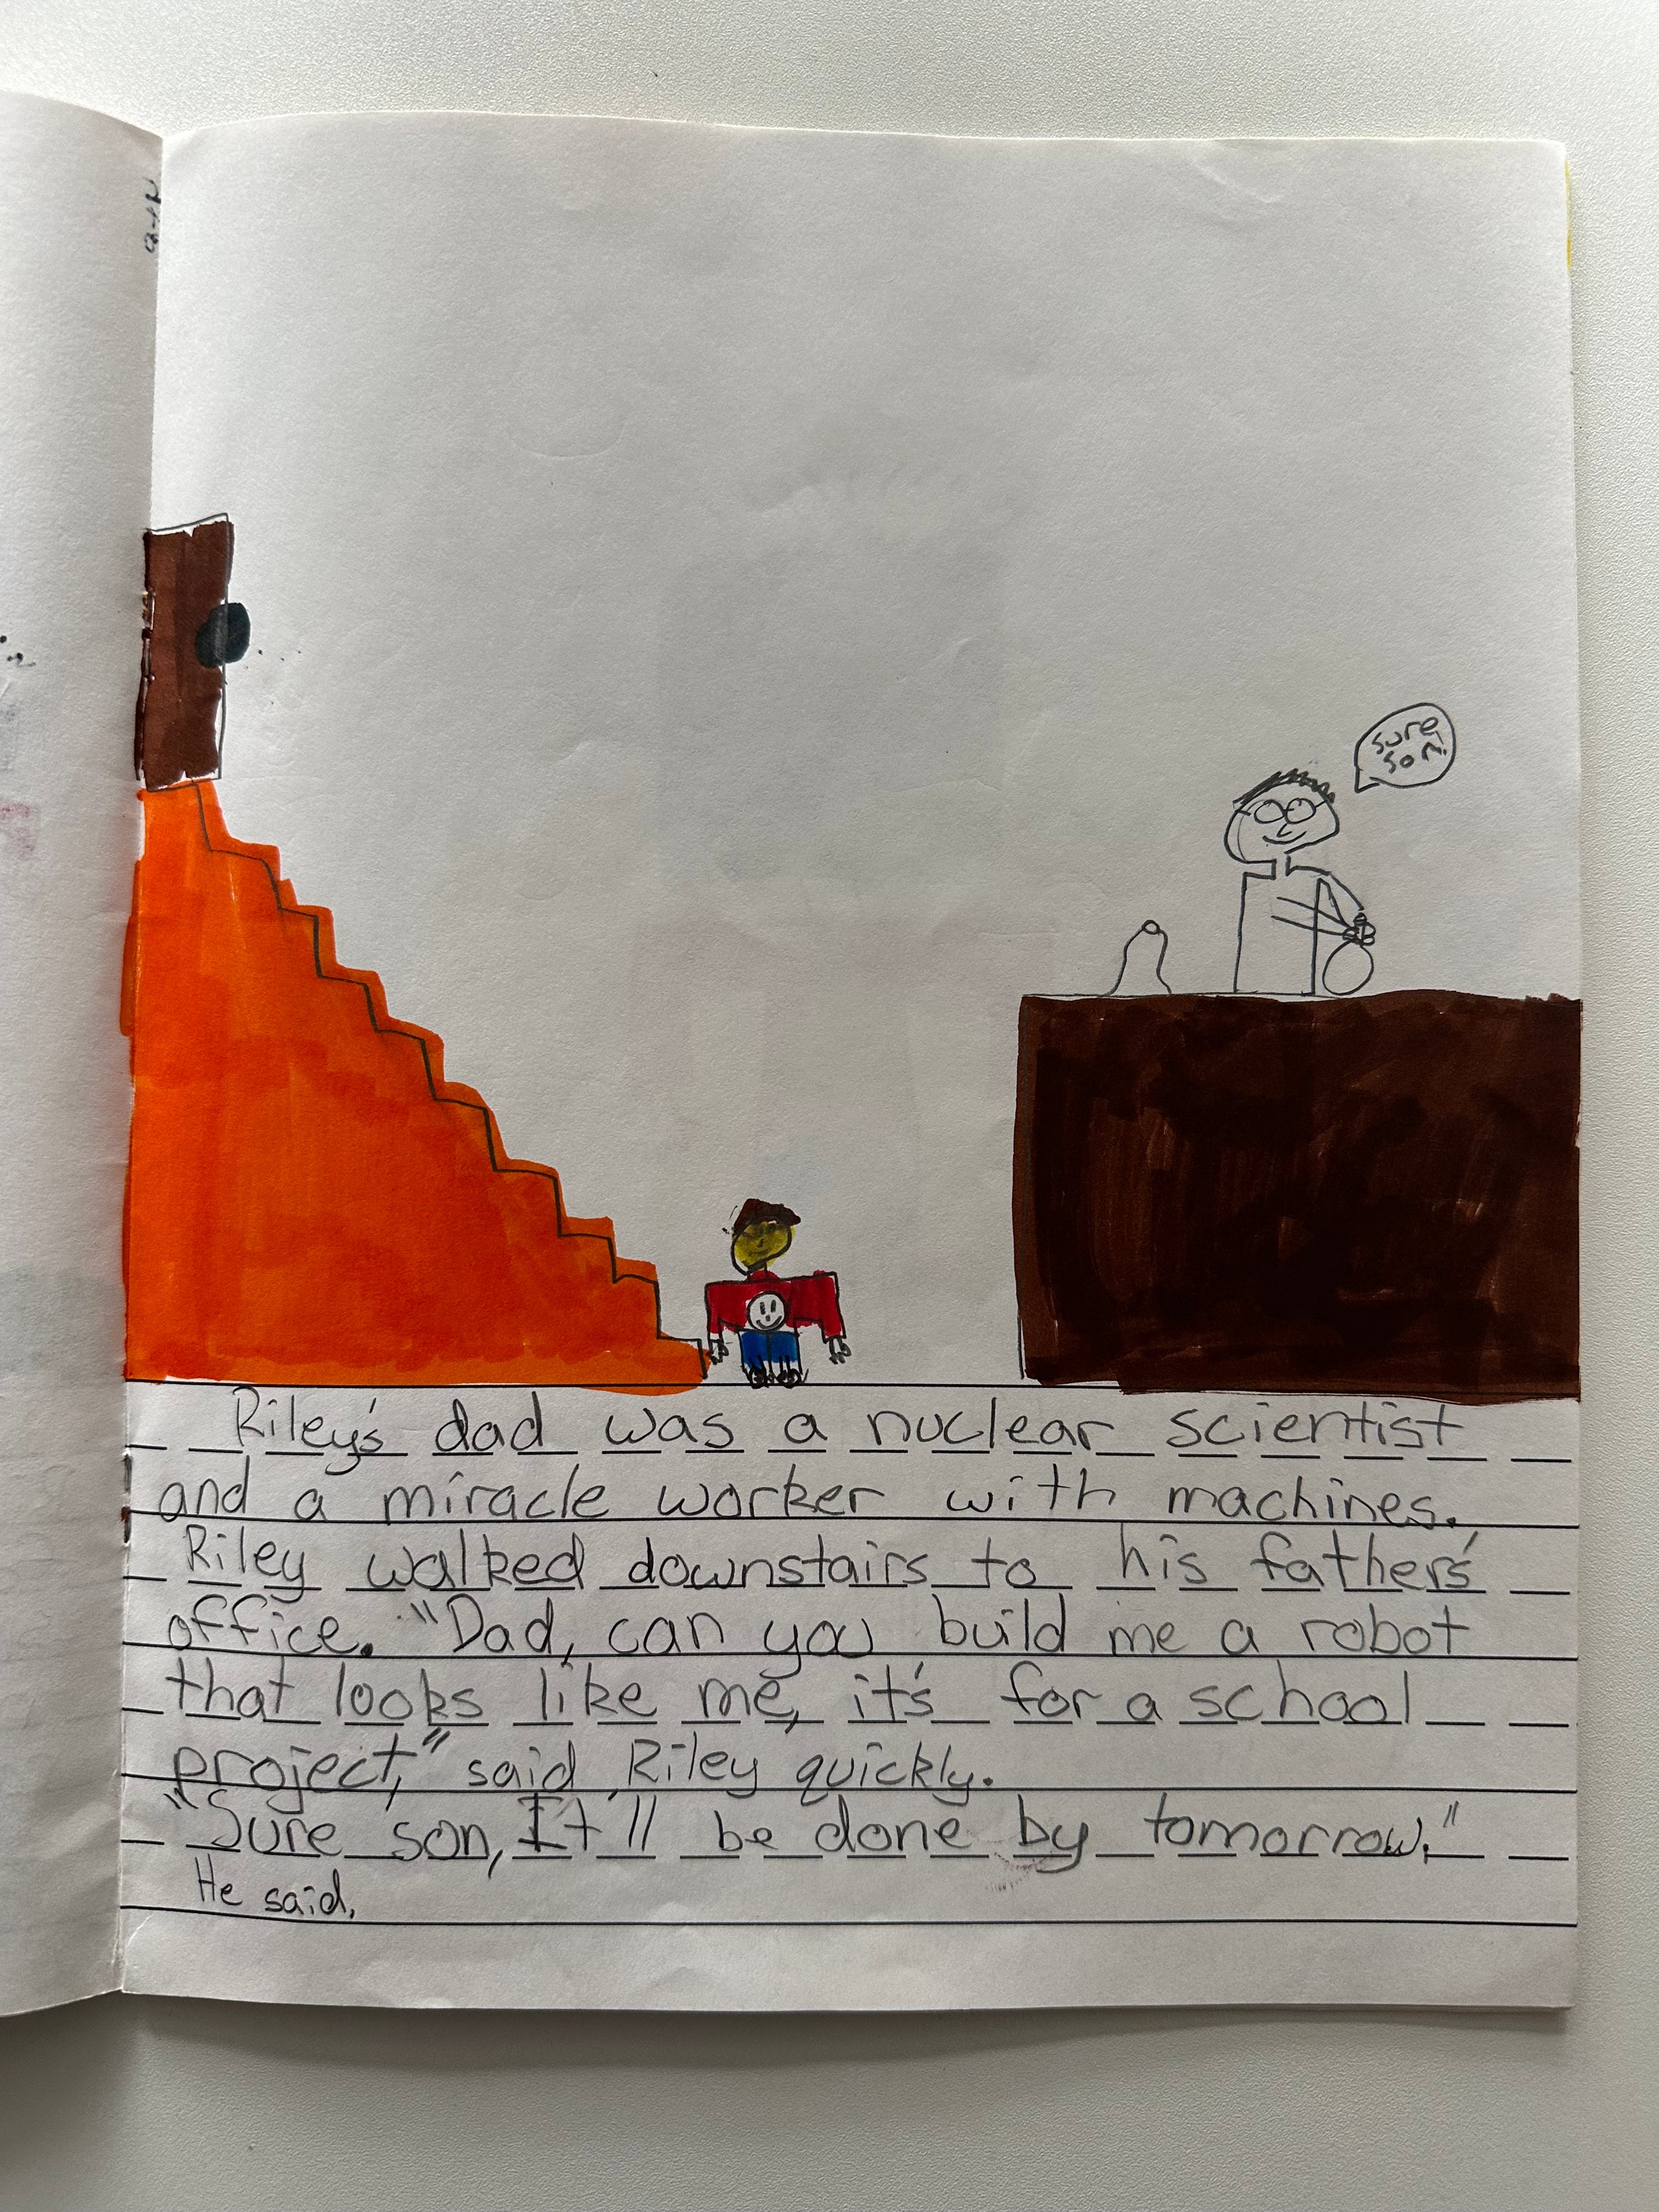 Sure
son!
Riley's dad was a nuclear scientist
and a miracle worker with machines.
Riley walked downstairs to his father's
office. "Dad, can you build me a robot
that looks like me, it's for a school
project," said Riley quickly.
"Sure son, It'll be done by tomorrow."
He said.